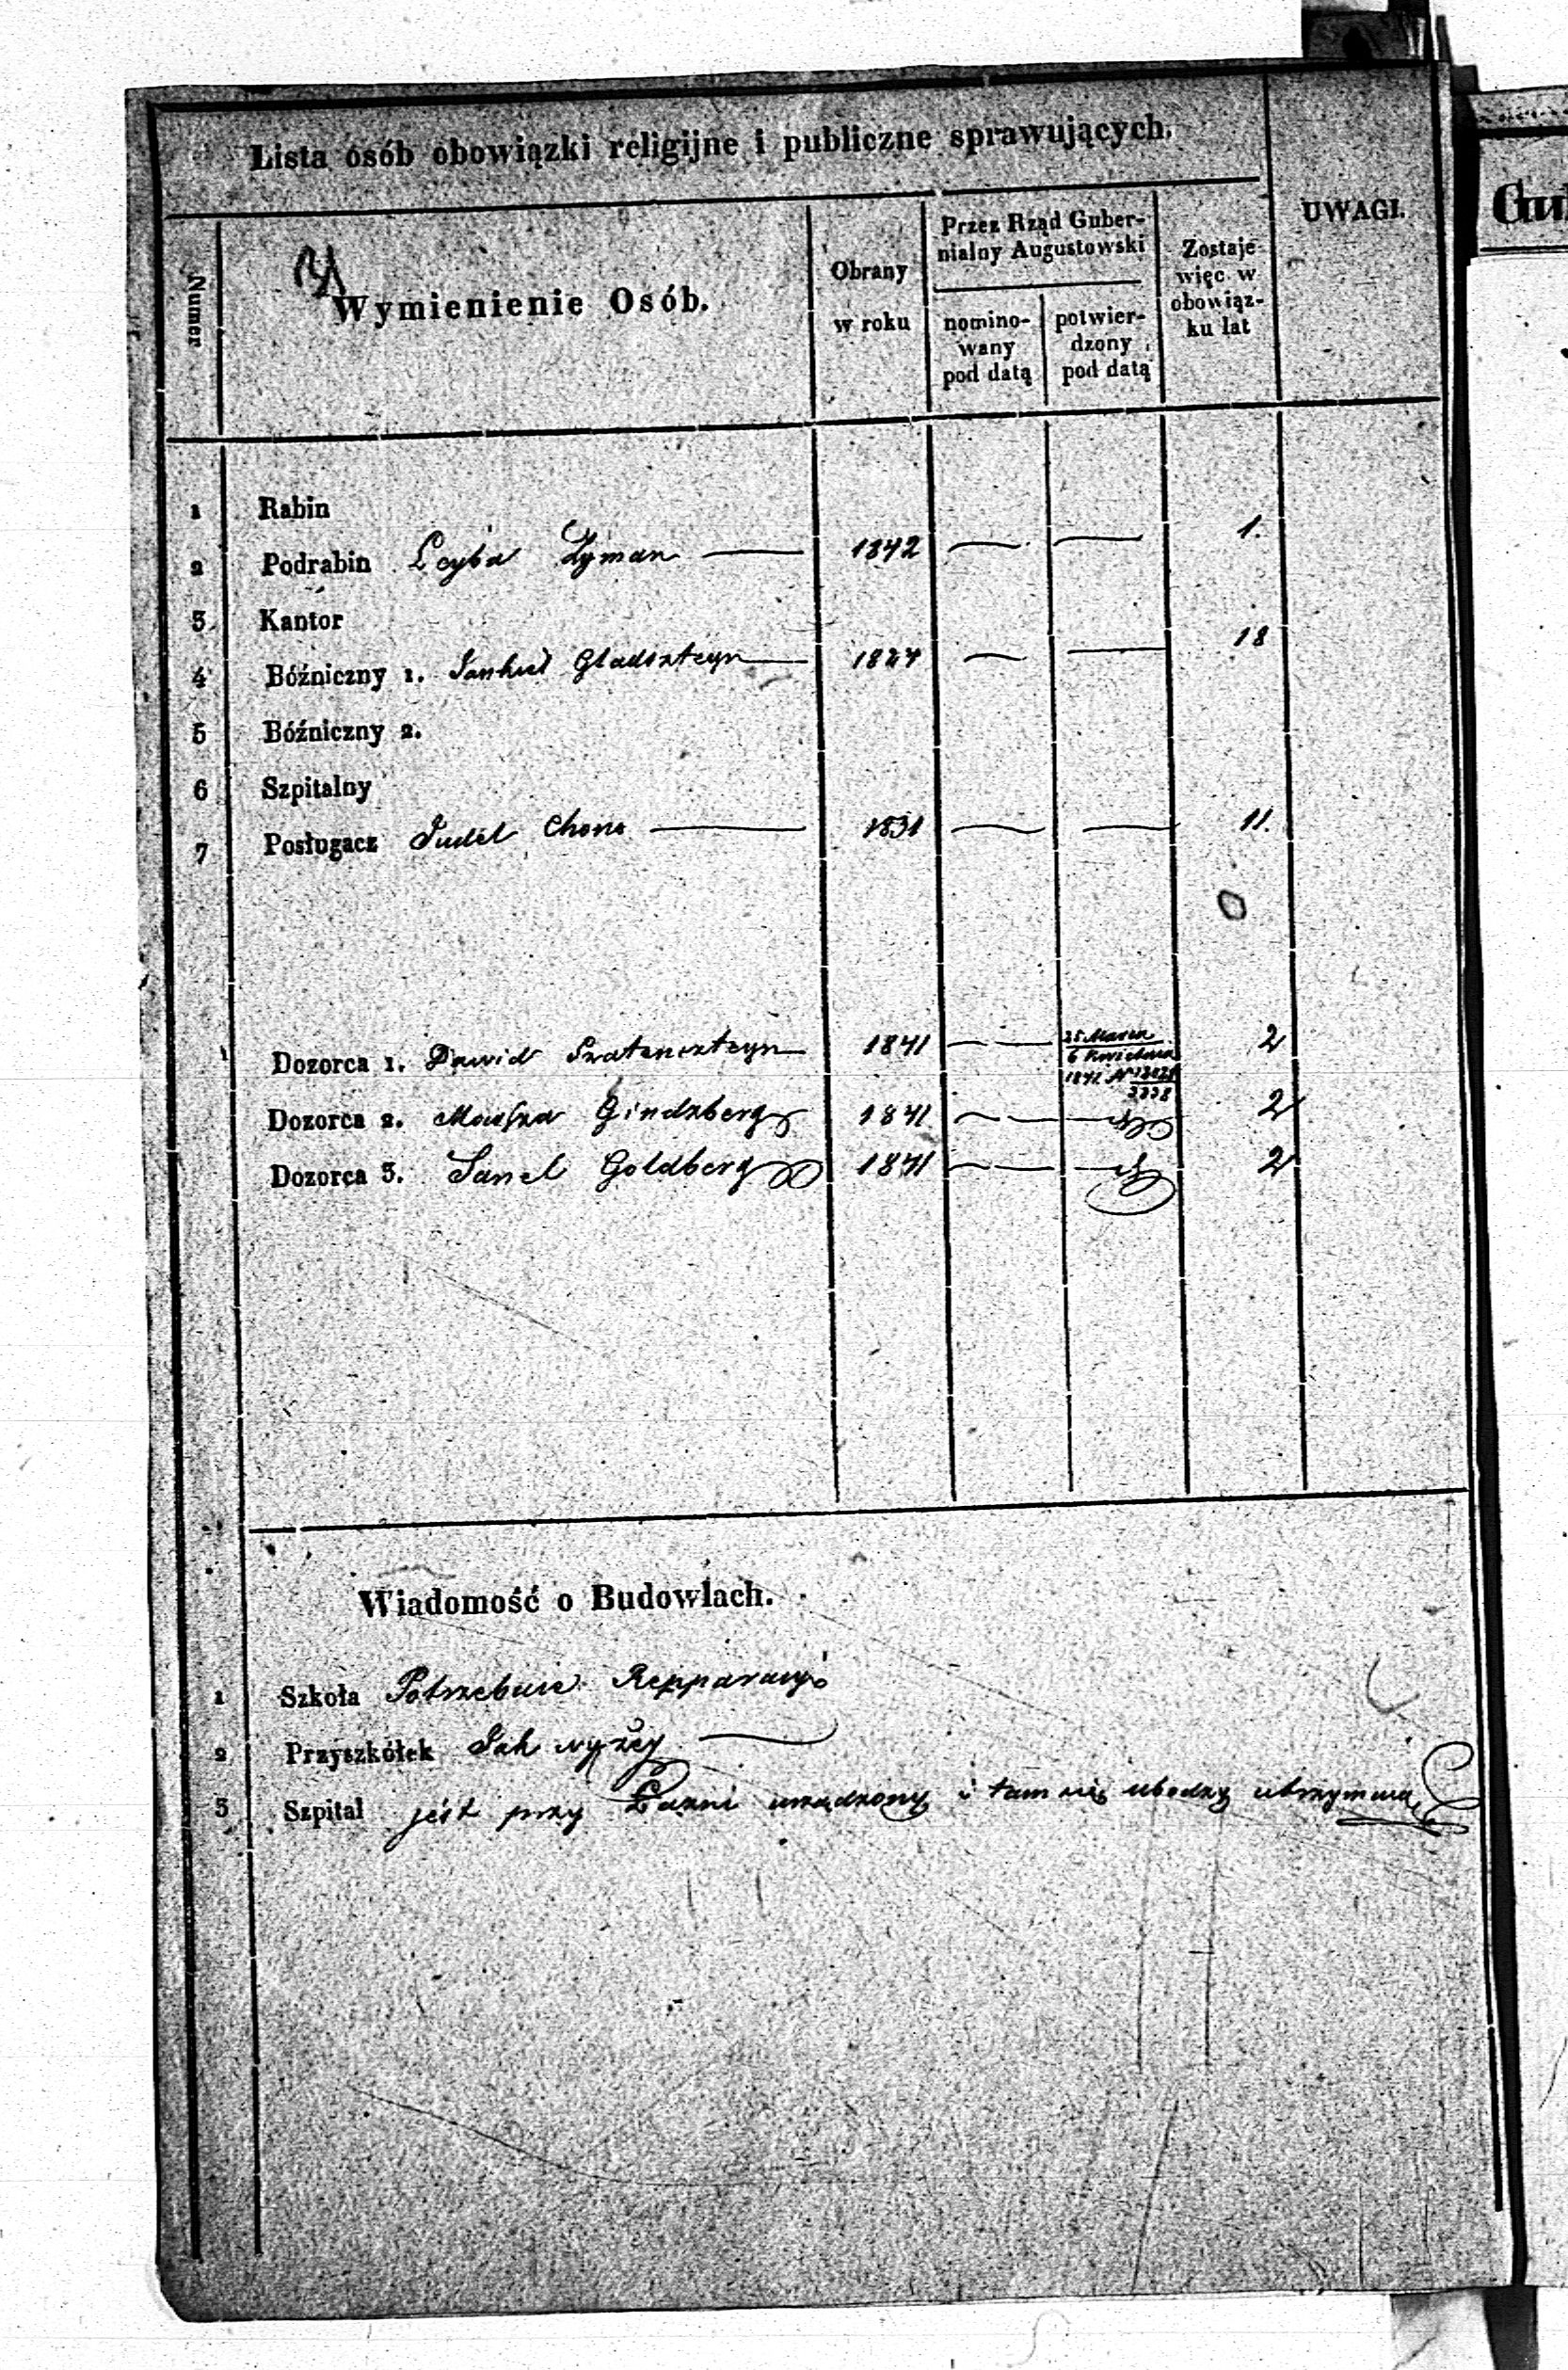 Lista osób obowiązki religijne i publiczne sprawujących.
UWAGI.
Numer
Wymienienie Osób.
Obrany w roku
Przez Rząd Gubernialny Augustowski
nominowany pod datą
potwierdzony pod datą
Zostaje więc w obowiązku lat
1 Rabin
2 Podrabin Leyba Zyman 1842 — — 1.
3 Kantor
4 Bóźniczny 1. Jankiel Gladszteyn — — 18
5 Bóźniczny 2.
6 Szpitalny
7 Posługacz Judel Chone 1831 — — 11.
Dozorca 1. Dawid 1841 — 25 Marca / 6 Kwietnia 2
Dozorca 2. Gindzberg 1841 — 2
Dozorca 3. Goldberg 1841 — 2
Wiadomość o Budowlach.
1 Szkoła Potrzebuie Repparacyi
2 Przyszkółek Jak wyżey
3 Szpital jest przy Łazni urządzony i tam się ubodzy
Gu